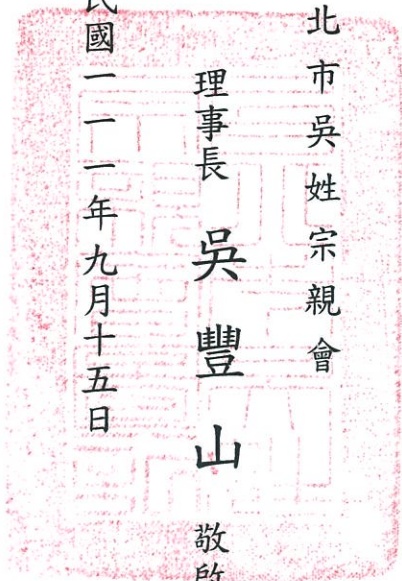 北市吳姓宗親會
理事長 吳豐山 敬啟
民國一一一年九月十五日